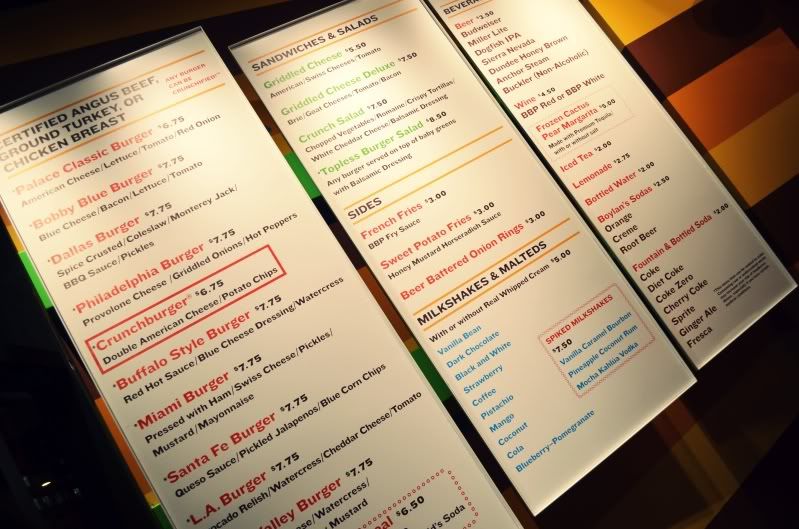 CERTIFIED ANGUS BEEF,
GROUND TURKEY, OR
CHICKEN BREAST
ANY BURGER
CAN BE
CRUNCHIFIED™
*Palace Classic Burger $6.75
American Cheese/Lettuce/Tomato/Red Onion
*Bobby Blue Burger $7.75
Blue Cheese/Bacon/Lettuce/Tomato
*Dallas Burger $7.75
Spice Crusted/Coleslaw/Monterey Jack/
BBQ Sauce/Pickles
*Philadelphia Burger $7.75
Provolone Cheese/Griddled Onions/Hot Peppers
*Crunchburger® $6.75
Double American Cheese/Potato Chips
*Buffalo Style Burger $7.75
Red Hot Sauce/Blue Cheese Dressing/Watercress
*Miami Burger $7.75
Pressed with Ham/Swiss Cheese/Pickles/
Mustard/Mayonnaise
*Santa Fe Burger $7.75
Queso Sauce/Pickled Jalapenos/Blue Corn Chips
*L.A. Burger $7.75
Relish/Watercress/Cheddar Cheese/Tomato
Burger $7.75
Watercress/
Mustard
$6.50
Soda
SANDWICHES & SALADS
Griddled Cheese $5.50
American/Swiss Cheeses/Tomato
Griddled Cheese Deluxe $7.50
Brie/Goat Cheeses/Tomato/Bacon
Crunch Salad $7.50
Chopped Vegetables/Romaine/Crispy Tortillas/
White Cheddar Cheese/Balsamic Dressing
*Topless Burger Salad $8.50
Any burger served on top of baby greens
with Balsamic Dressing
SIDES
French Fries $3.00
BBP Fry Sauce
Sweet Potato Fries $3.00
Honey Mustard Horseradish Sauce
Beer Battered Onion Rings $3.00
MILKSHAKES & MALTEDS
With or without Real Whipped Cream $5.00
Vanilla Bean
Dark Chocolate
Black and White
Strawberry
Coffee
Pistachio
Mango
Coconut
Cola
Blueberry–Pomegranate
SPIKED MILKSHAKES
$7.50
Vanilla Caramel Bourbon
Pineapple Coconut Rum
Mocha Kahlua Vodka
Beer $3.50
Budweiser
Miller Lite
Dogfish IPA
Sierra Nevada
Dundee Honey Brown
Anchor Steam
Buckler (Non-Alcoholic)
Wine $4.50
BBP Red or BBP White
Frozen Cactus
Pear Margarita
Made with Premium Tequila,
with or without salt
Iced Tea $2.00
Lemonade $2.75
Bottled Water $2.00
Boylan's Sodas $2.50
Orange
Creme
Root Beer
Fountain & Bottled Soda $2.00
Coke
Diet Coke
Coke Zero
Cherry Coke
Sprite
Ginger Ale
Fresca